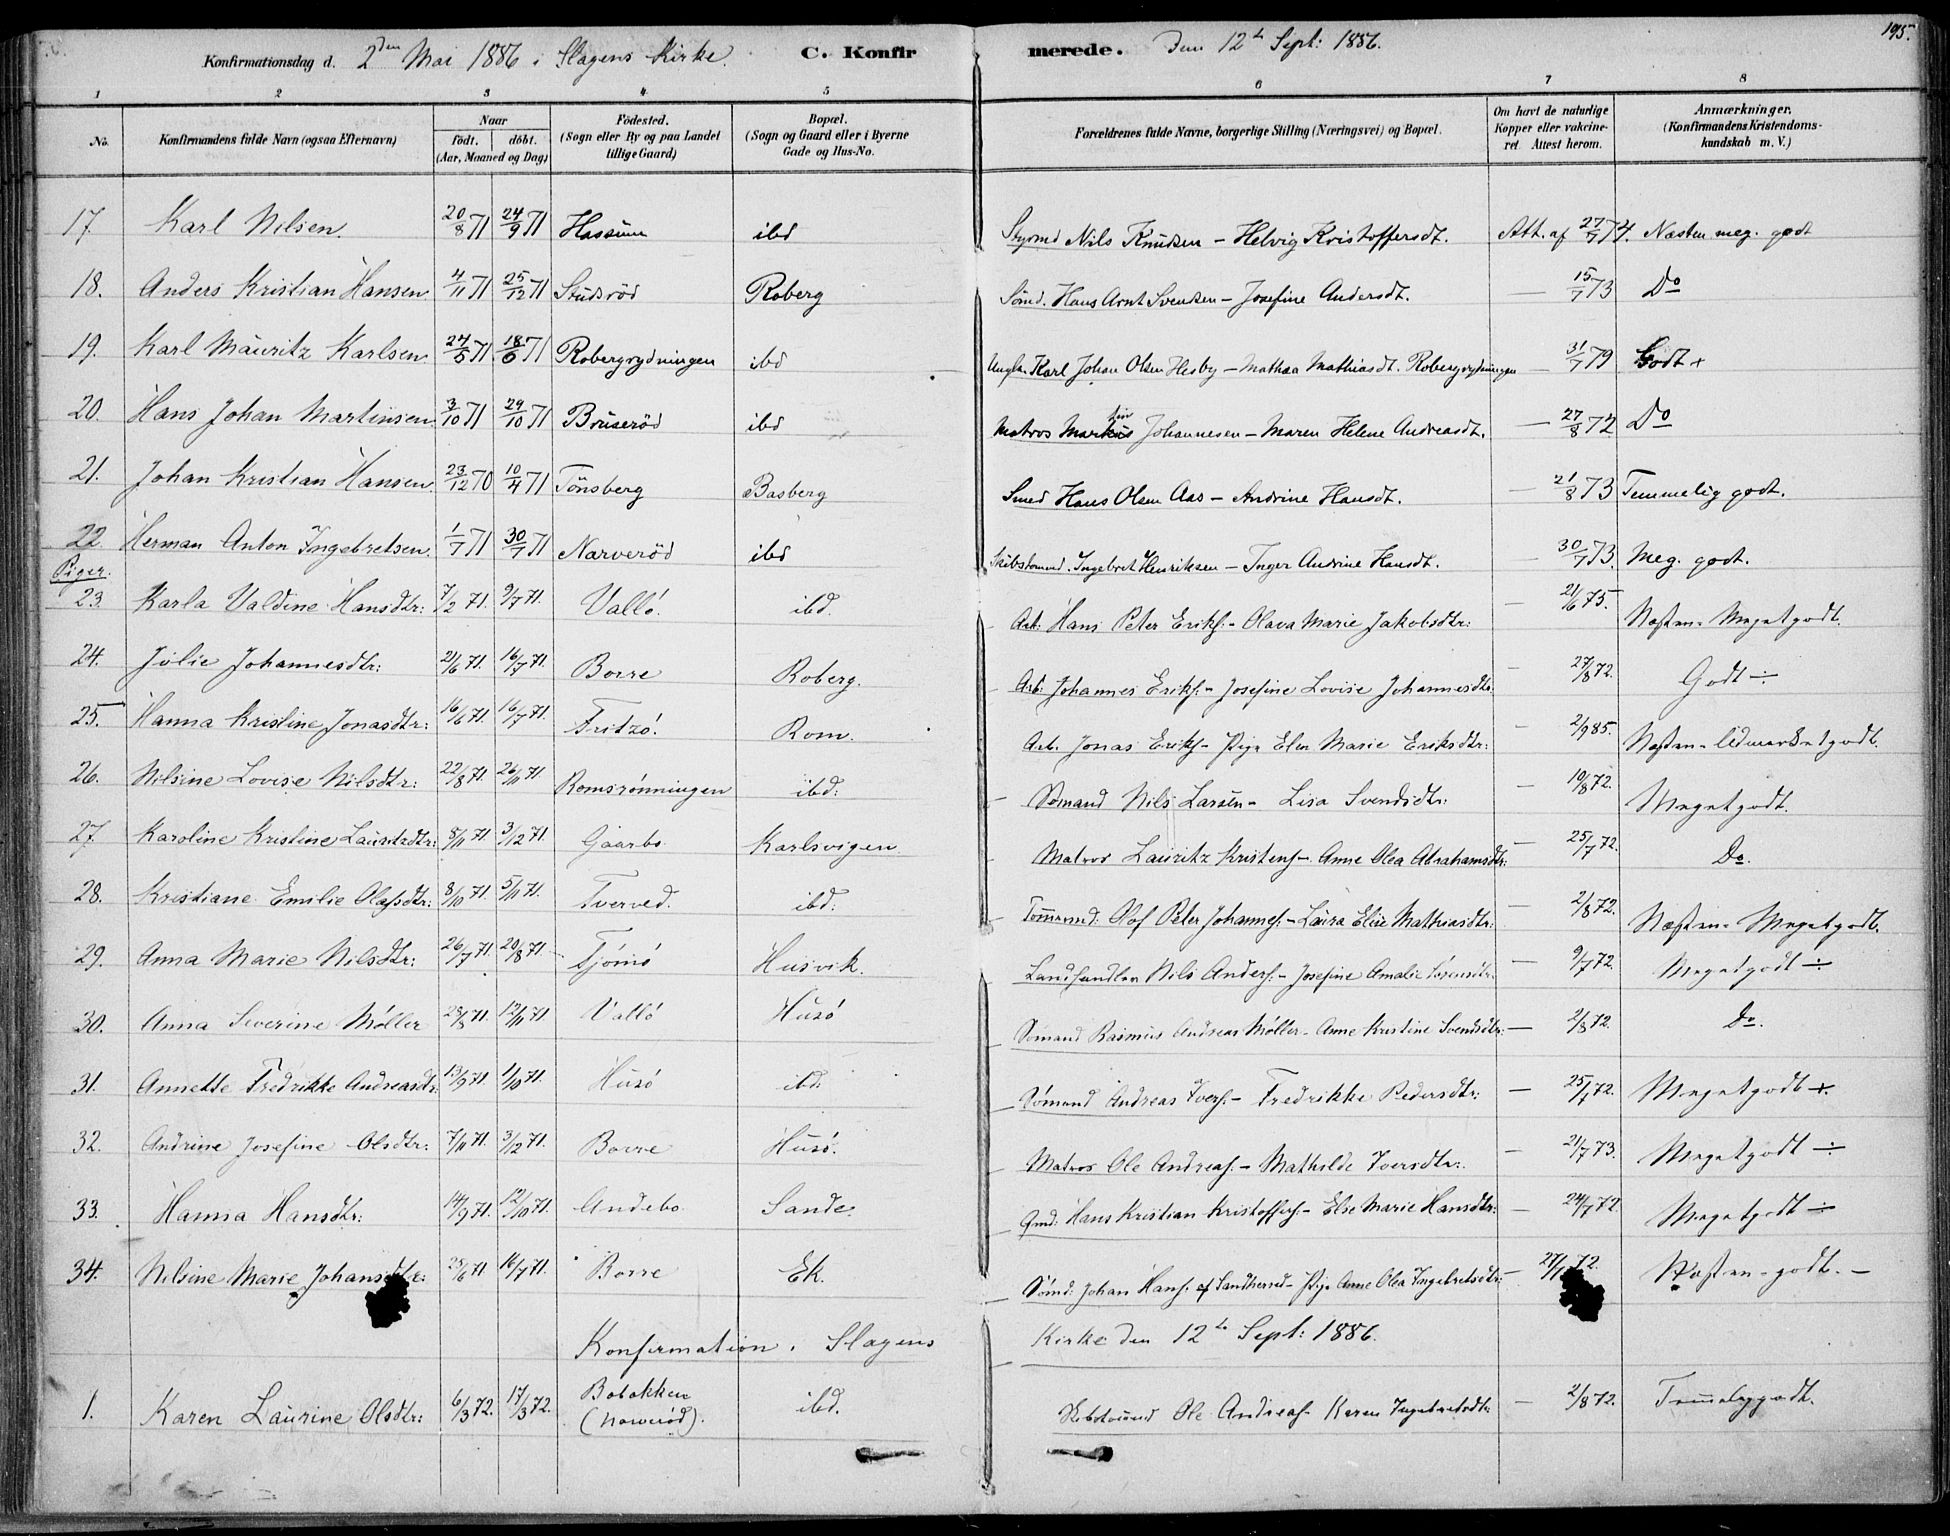 195.
Konfirmationsdag d. 2den Mai 1886 i Slagens Kirke. C. Konfirmerede. Den 12te Sept: 1886.
1 2 3 4 5 6 7 8
No. Konfirmandens fulde Navn (ogsaa Efternavn) Naar födt. döbt. (Aar, Maaned og Dag) Födested. (Sogn eller By og paa Landet tillige Gaard) Bopæl. (Sogn og Gaard eller i Byerne Gade og Hus-No. Forældrenes fulde Navne, borgerlige Stilling (Næringsvei) og Bopæl. Om havt de naturlige Kopper eller vakcineret. Attest herom. Anmærkninger. (Konfirmandens Kristendomskundskab m. V.)
17. Karl Nilsen. 20/8 71 24/9 71 Hassum ibd Styrmd Nils Knudsen – Helvig Kristoffersdt. Att. af 27/7 74. Næsten meg. godt
18. Anders Kristian Hansen 4/11 71 25/12 71 Stusröd Roberg Sömd. Hans Arnt Svendsen – Josefine Andersdt. — 15/7 73 Do
19. Karl Mauritz Karlsen 27/5 71. 18/6 71 Robergrydningen ibd Karl Johan Olsen Hesby – Mathea Mathiasdt. Robergrydningen — 31/7 79 Godt +
20. Hans Johan Martinsen 3/10 71 29/10 71 Bruseröd ibd Matros Martin Johannesen – Maren Helene Andreasdt. — 27/8 72 Do
21. Johan Kristian Hansen. 23/12 70 10/4 71 Tönsberg Basberg Smed Hans Olsen Aas – Andrine Hansdt. — 21/8 73 Temmelig godt.
22. Herman Anton Ingebretsen. 1/7 71 30/7 71 Narveröd ibd Skibstømmd. Ingebret Henriksen – Inger Andrine Hansdt. — 30/7 73. Meg. godt.
Piger.
23. Karla Valdine Hansdtr: 7/2 71. 9/7 71. Vallö. ibd. Arb: Hans Peter Eriks. – Olava Marie Jakobsdtr: — 21/6 75. Næsten – Megetgodt.
24. Julie Johannesdtr: 21/6 71. 16/7 71. Borre Roberg. Arb: Johannes Eriks. – Josefine Lovise Johannesdtr. — 27/8 72. Godt ÷
25. Hanna Kristine Jonasdtr: 16/6 71. 16/7 71. Fritzö. Rom. Arb. Jonas Eriks – Pige Elen Marie Eriksdtr: — 2/9 85. Næsten – Udmærketgodt.
26. Nilsine Lovise Nilsdtr: 22/8 71. 26/11 71. Romsrønningen ibd: Sømand Nils Larsen – Lisa Svendsdtr: — 10/8 72. Megetgodt.
27. Karoline Kristine Lauritzdtr: 8/11 71 3/12 71. Gaarbo Karlsvigen Matros Lauritz Kristens – Anne Olea Abrahamsdtr: — 25/7 72. Do.
28. Kristiane Emilie Olafsdtr: 8/10 71. 5/11 71. Tverved. ibd: Tømmermd: Olof Peter Johannes. – Laura Elise Mathiasdtr: — 2/8 72. Næsten – Megetgodt.
29. Anna Marie Nilsdtr: 26/7 71. 20/8 71. Tjömö Husvik. Landhandler Nils Anders. – Josefine Amalie Sørensdtr. — 9/7 72. Megetgodt ÷
30. Anna Severine Møller 23/8 71. 12/11 71 Vallö Husö Sømand Rasmus Andreas Møller – Anne Kristine Svendsdtr: — 2/8 72. Do.
31. Annette Fredrikke Andreasdtr. 13/9 71. 1/10 71. Husö ibd: Sømand Andreas Ivers. – Fredrikke Pedersdtr: — 25/1 72. Megetgodt +.
32. Andrine Josefine Olsdtr: 7/11 71. 3/12 71. Borre Husö. Matros Ole Andreas. – Mathilde Iversdtr: — 21/7 73. Megetgodt ÷
33. Hanna Hansdtr: 14/9 71. 12/10 71. Andebo Sande. Gmd: Hans Kristian Kristoffers – Else Marie Hansdtr: — 24/7 72 Megetgodt ÷
34. Nilsine Marie Johansdtr: 25/6 71 16/7 71. Borre Ek. Sømd: Johan Hans. af Sandherred – Pige Anne Olea Ingebretsdtr: — 27/1 72. Næsten – godt. –
Konfirmation i Slagens Kirke den 12te Sept: 1886.
1. Karen Laurine Olsdtr: 6/3 72. 17/3 72. Babakken (Narveröd). ibd. Ole Andreas – Karen Ingebretsdtr — 2/8 72. Temmeliggodt.